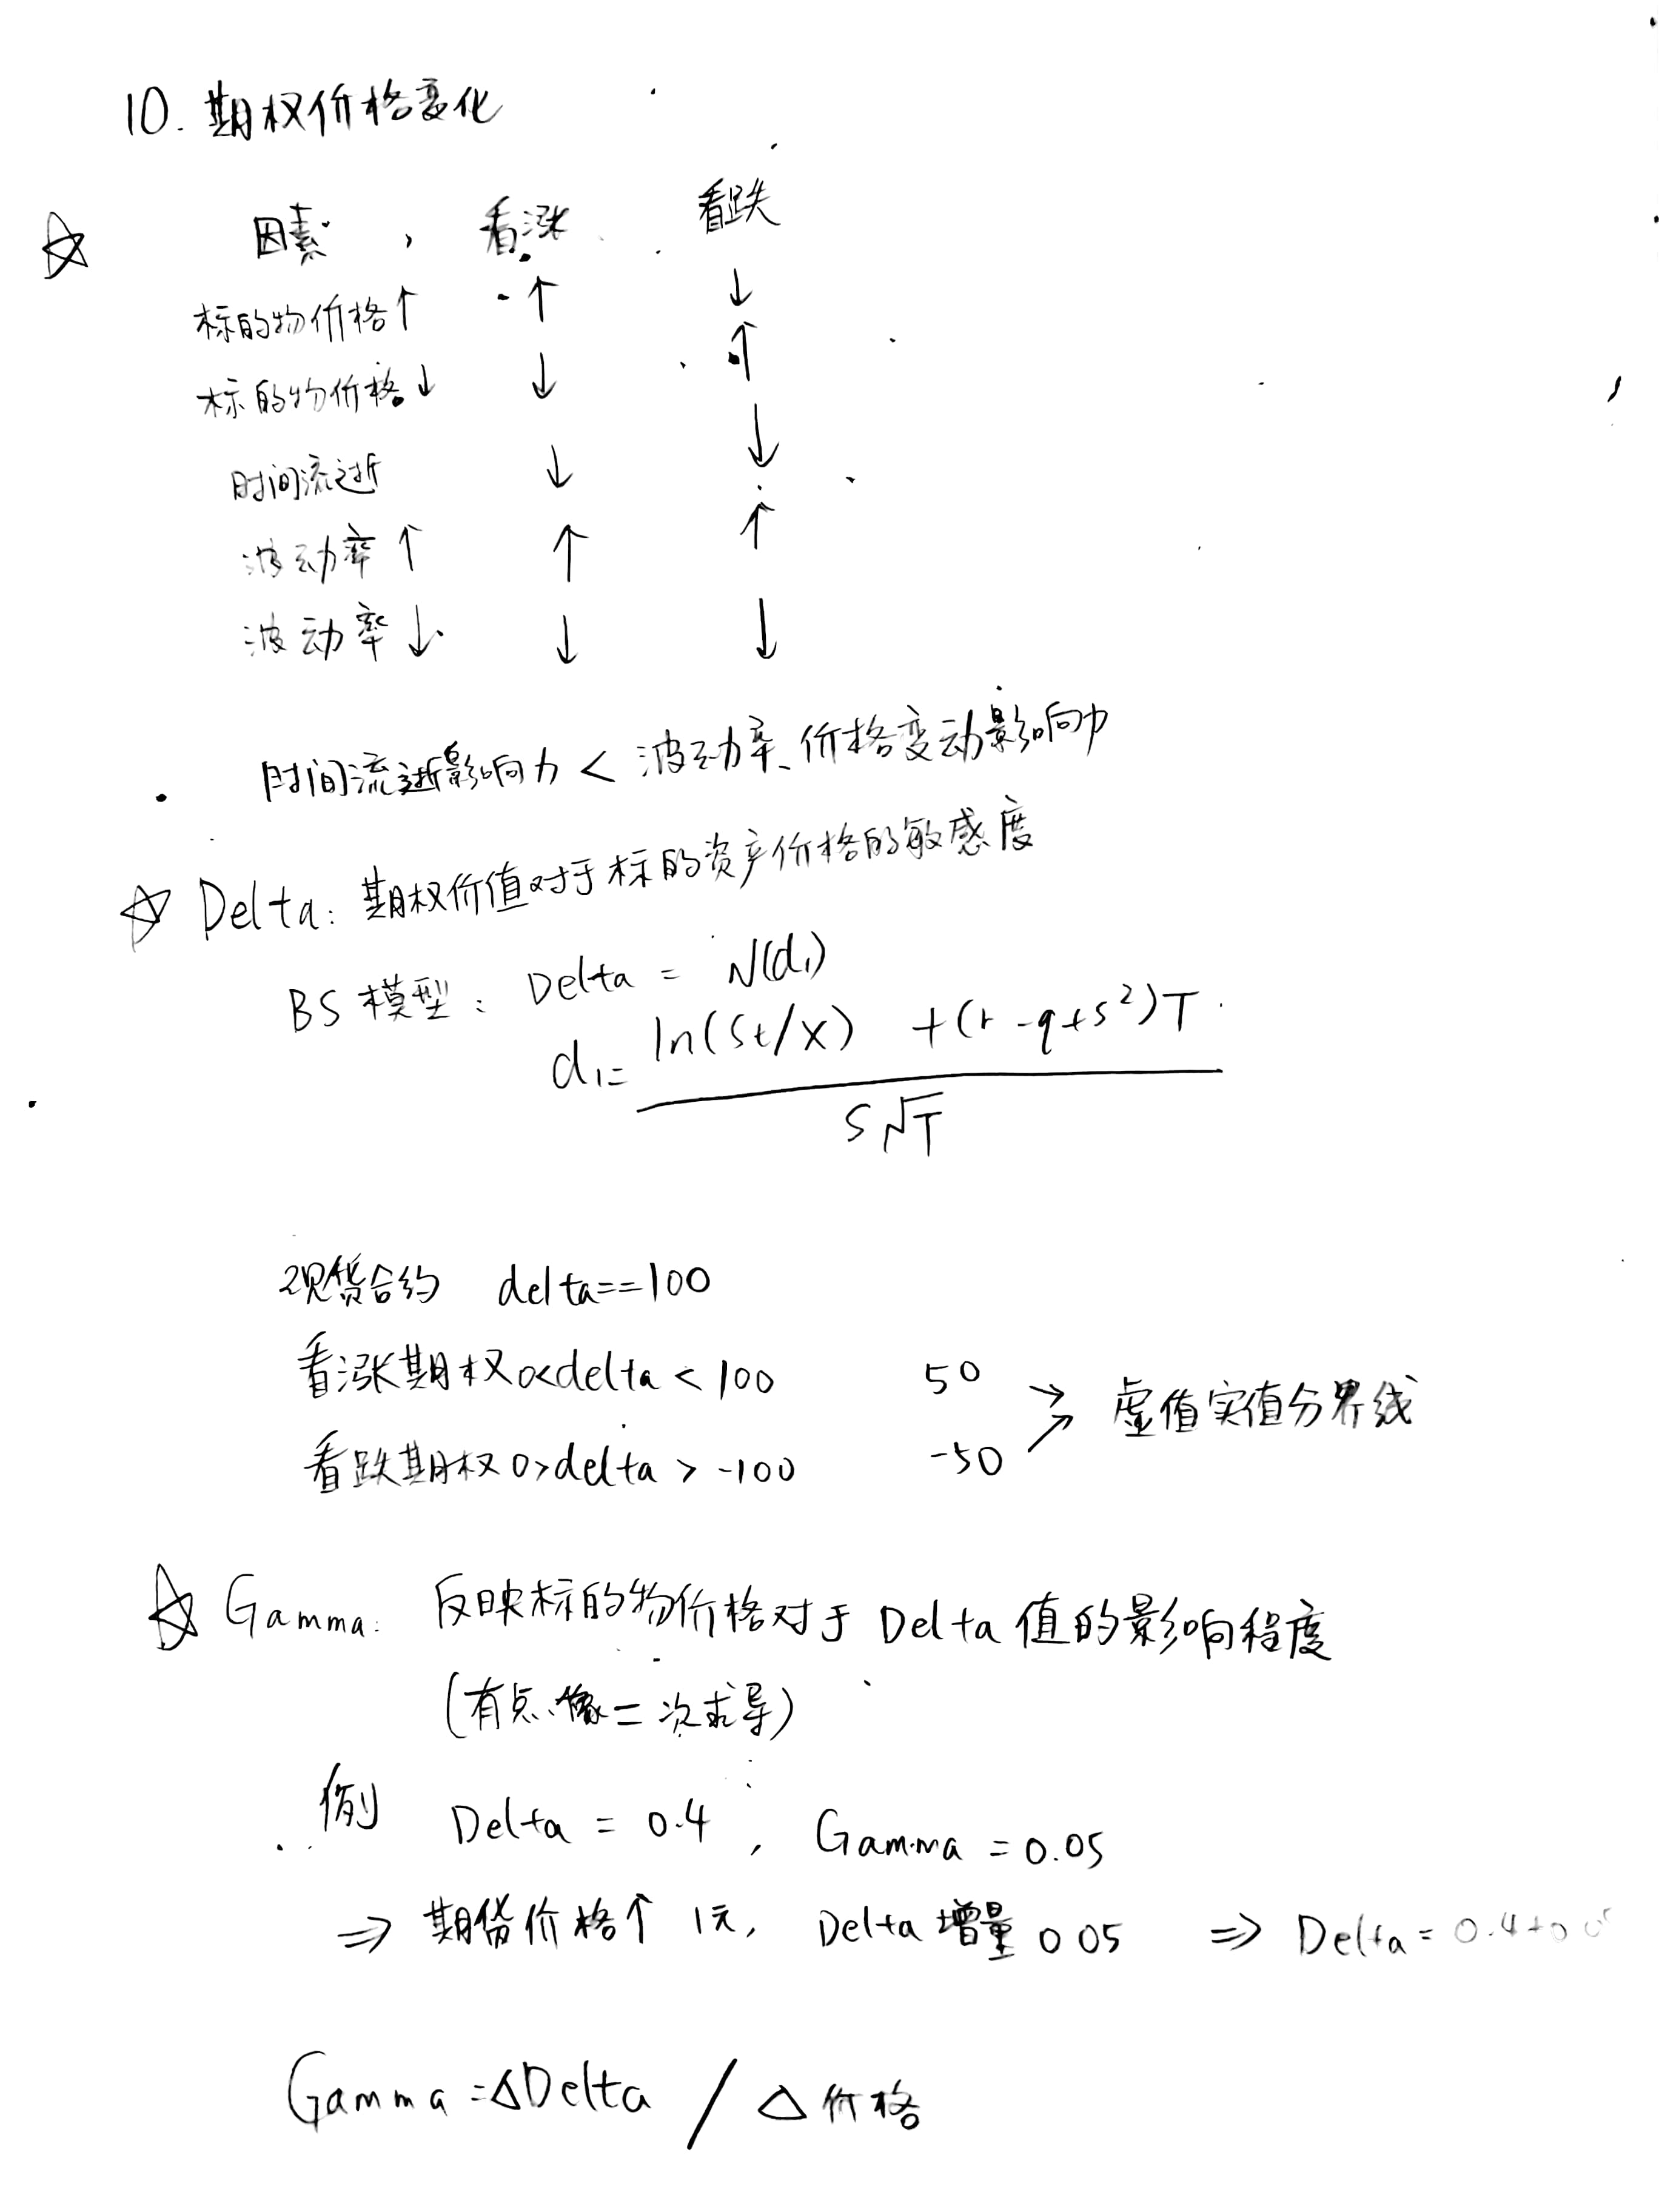 10. 期权价格变化
☆ 因素 , 看涨 看跌
标的物价格↑ ↑ ↓
标的物价格↓ ↓ ↑
时间流逝 ↓ ↓
波动率↑ ↑ ↑
波动率↓ ↓ ↓
时间流逝影响力 < 波动率、价格变动影响力
☆ Delta: 期权价值对于标的资产价格的敏感度
BS模型: Delta = N(d₁)
d₁= ln(St/X) +(r-q+s²)T
s√T
现货合约 delta==100
看涨期权0<delta<100 50
→ 虚值实值分界线
看跌期权0>delta>-100 -50 ↗
☆ Gamma: 反映标的物价格对于Delta值的影响程度
(有点像二次求导)
例 Delta = 0.4, Gamma = 0.05
⇒ 期货价格↑ 1元, Delta增量0.05 ⇒ Delta=0.4+0.05
Gamma=ΔDelta / Δ价格